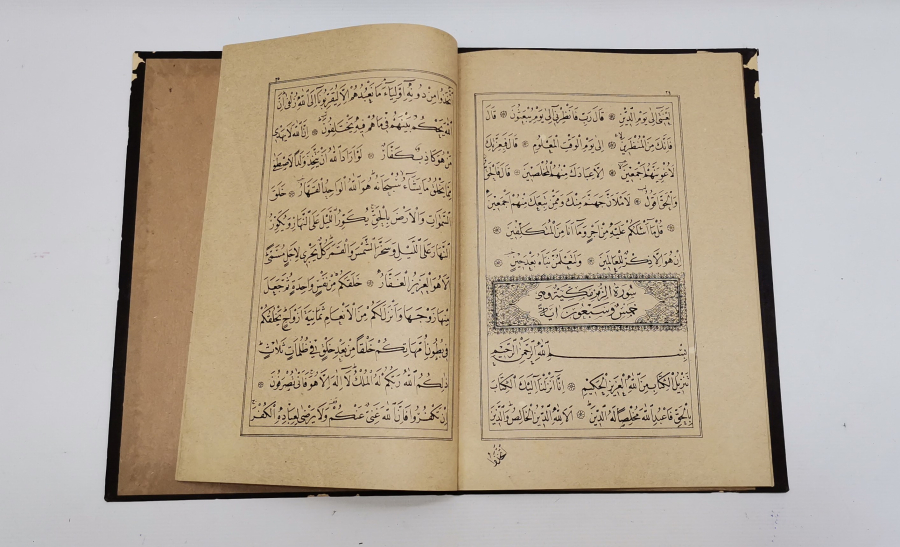 لَعْنَتِى اِلٰى يَوْمِ الدِّينِ ۞ قَالَ رَبِّ فَانْظِرْنِى اِلٰى يَوْمِ يُبْعَثُونَ ۞ قَالَ
فَاِنَّكَ مِنَ الْمُنْظَرِينَ ۞ اِلٰى يَوْمِ الْوَقْتِ الْمَعْلُومِ ۞ قَالَ فَبِعِزَّتِكَ
لَاُغْوِيَنَّهُمْ اَجْمَعِينَ ۞ اِلَّا عِبَادَكَ مِنْهُمُ الْمُخْلَصِينَ ۞ قَالَ فَالْحَقُّ
وَالْحَقَّ اَقُولُ ۞ لَاَمْلَـَٔنَّ جَهَنَّمَ مِنْكَ وَمِمَّنْ تَبِعَكَ مِنْهُمْ اَجْمَعِينَ ۞
قُلْ مَا اَسْـَٔلُكُمْ عَلَيْهِ مِنْ اَجْرٍ وَمَا اَنَا مِنَ الْمُتَكَلِّفِينَ ۞
اِنْ هُوَ اِلَّا ذِكْرٌ لِلْعَالَمِينَ ۞ وَلَتَعْلَمُنَّ نَبَاَهُ بَعْدَ حِينٍ ۞
سورة الزمر مكية وهى
خمس وسبعون اية
بِسْمِ اللّٰهِ الرَّحْمٰنِ الرَّحِيمِ
تَنْزِيلُ الْكِتَابِ مِنَ اللّٰهِ الْعَزِيزِ الْحَكِيمِ ۞ اِنَّا اَنْزَلْنَا اِلَيْكَ الْكِتَابَ
بِالْحَقِّ فَاعْبُدِ اللّٰهَ مُخْلِصًا لَهُ الدِّينَ ۞ اَلَا لِلّٰهِ الدِّينُ الْخَالِصُ وَالَّذِينَ
اتخذوا
اتَّخَذُوا مِنْ دُونِهِ اَوْلِيَاءَ مَا نَعْبُدُهُمْ اِلَّا لِيُقَرِّبُونَا اِلَى اللّٰهِ زُلْفٰى اِنَّ
اللّٰهَ يَحْكُمُ بَيْنَهُمْ فِى مَا هُمْ فِيهِ يَخْتَلِفُونَ ۞ اِنَّ اللّٰهَ لَا يَهْدِى
مَنْ هُوَ كَاذِبٌ كَفَّارٌ ۞ لَوْ اَرَادَ اللّٰهُ اَنْ يَتَّخِذَ وَلَدًا لَاصْطَفٰى
مِمَّا يَخْلُقُ مَا يَشَاءُ سُبْحَانَهُ هُوَ اللّٰهُ الْوَاحِدُ الْقَهَّارُ ۞ خَلَقَ
السَّمٰوَاتِ وَالْاَرْضَ بِالْحَقِّ يُكَوِّرُ اللَّيْلَ عَلَى النَّهَارِ وَيُكَوِّرُ
النَّهَارَ عَلَى اللَّيْلِ وَسَخَّرَ الشَّمْسَ وَالْقَمَرَ كُلٌّ يَجْرِى لِاَجَلٍ مُسَمًّى
اَلَا هُوَ الْعَزِيزُ الْغَفَّارُ ۞ خَلَقَكُمْ مِنْ نَفْسٍ وَاحِدَةٍ ثُمَّ جَعَلَ
مِنْهَا زَوْجَهَا وَاَنْزَلَ لَكُمْ مِنَ الْاَنْعَامِ ثَمَانِيَةَ اَزْوَاجٍ يَخْلُقُكُمْ
فِى بُطُونِ اُمَّهَاتِكُمْ خَلْقًا مِنْ بَعْدِ خَلْقٍ فِى ظُلُمَاتٍ ثَلَاثٍ
ذٰلِكُمُ اللّٰهُ رَبُّكُمْ لَهُ الْمُلْكُ لَا اِلٰهَ اِلَّا هُوَ فَاَنّٰى تُصْرَفُونَ ۞
اِنْ تَكْفُرُوا فَاِنَّ اللّٰهَ غَنِىٌّ عَنْكُمْ وَلَا يَرْضٰى لِعِبَادِهِ الْكُفْرَ